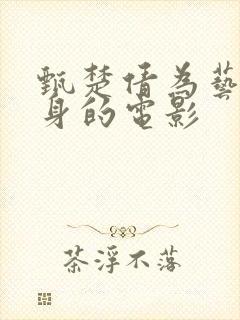 甄楚倩為藝
身的電影
茶浮不落